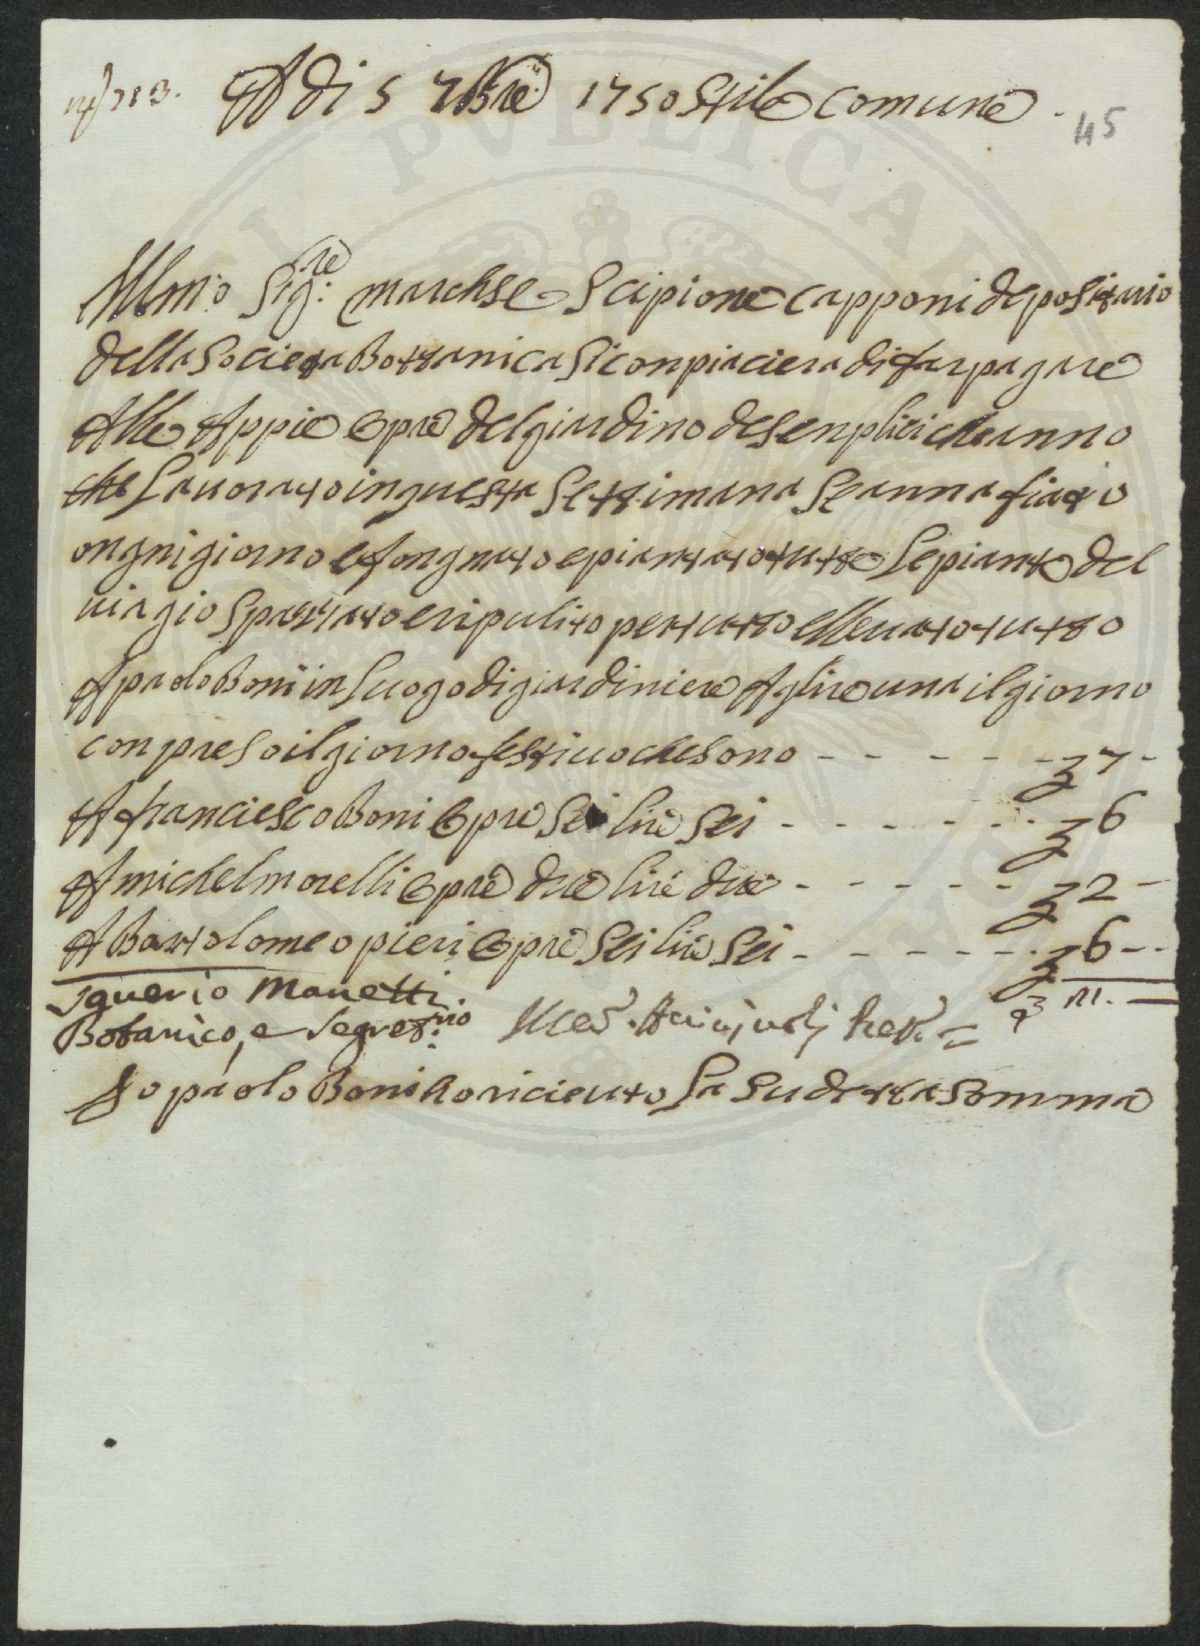 A di 5 7bre 1750 Stile comune
45
Illmo Sig:re marchse Scipione Capponi depositario
della Societa Bottanica Si conpiaciera di far pagare
Alle Appie Opre del giardino de senplici che anno
che Lauorato in questa Settimana Se annafiato
ongni giorno e fongnato e piantato tutte Le piante del
uiagio Spazzato e ripulito per tutto elleuato tutto
A paolo Boni in Luogo di giardiniere A lire una il giorno
conpreso il giorno festiuo che sono - - - - - £ 7 -
A franciesco Boni Opre Sei lire Sei - - - - - - £ 6
A michel morelli Opre due lire due - - - - - - £ 2 -
A Bartolomeo pieri Opre Sei lire Sei - - - - - - £ 6 - -
Sauerio Manetti
Botanico, e Segret:rio
£ 21. -
Io paolo Boni ho riceuto La Sudetta Somma